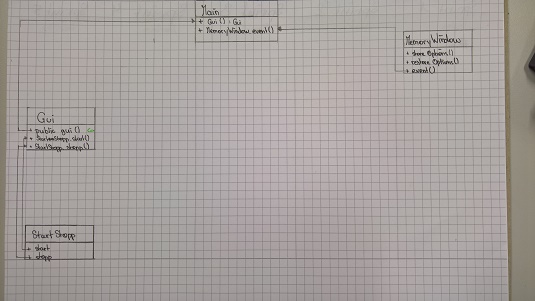 Main
+ Gui() : Gui
+ MemoryWindow.event()
MemoryWindow
+ store Options()
+ restore Options()
+ event()
Gui
+ public gui()
+ StartStopp.start()
+ StartStopp.stopp()
StartStopp
+ start
+ stopp